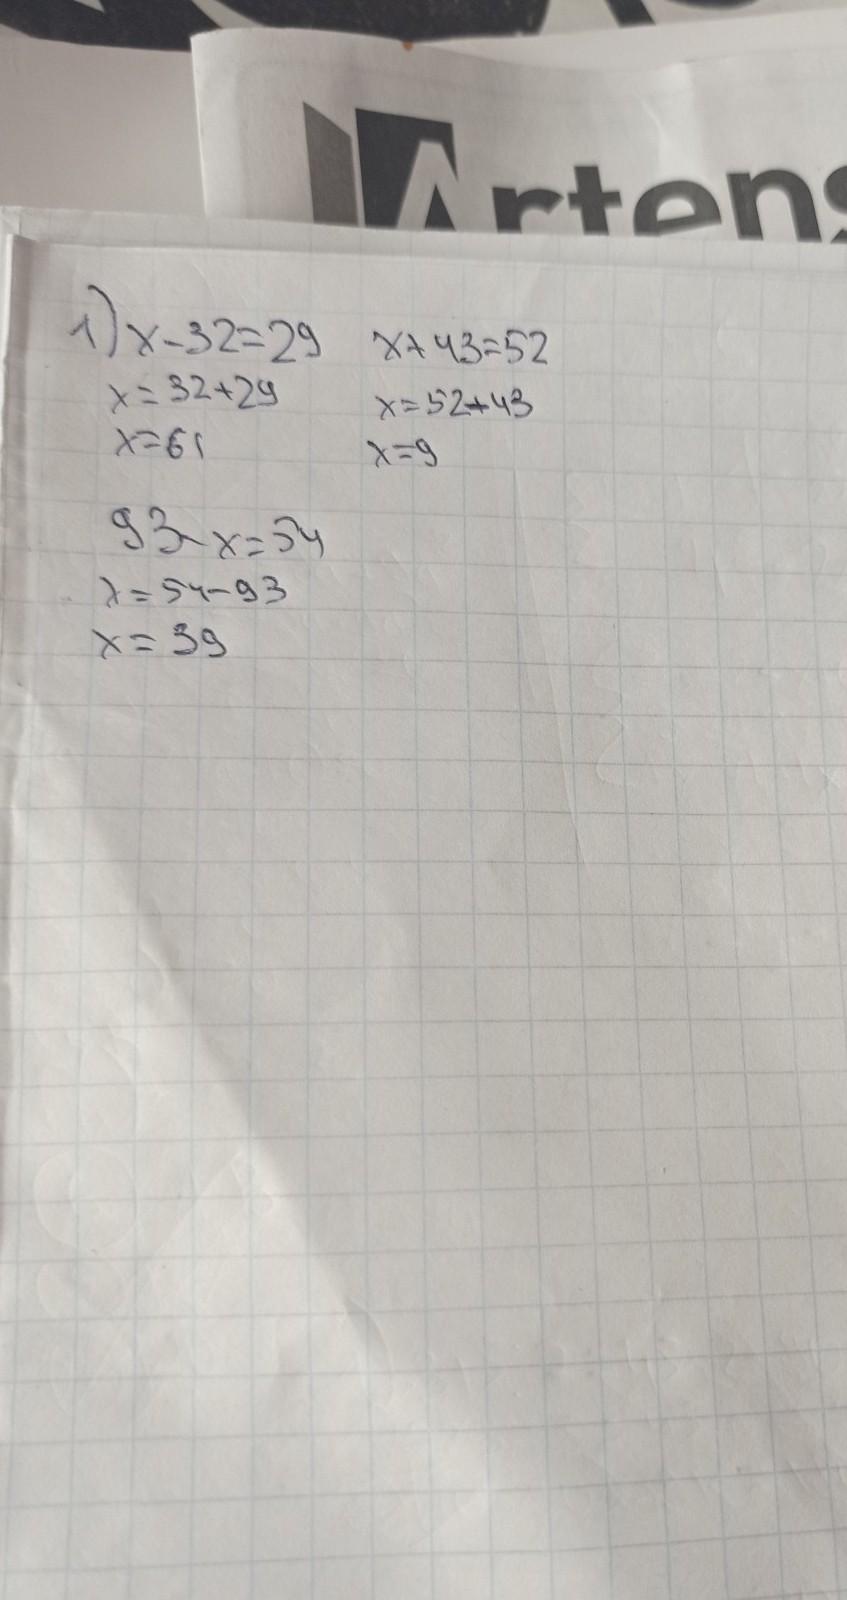 Artens
1) x-32=29
x=32+29
x=61
x+43=52
x=52+43
x=9
93-x=54
x=54-93
x=39